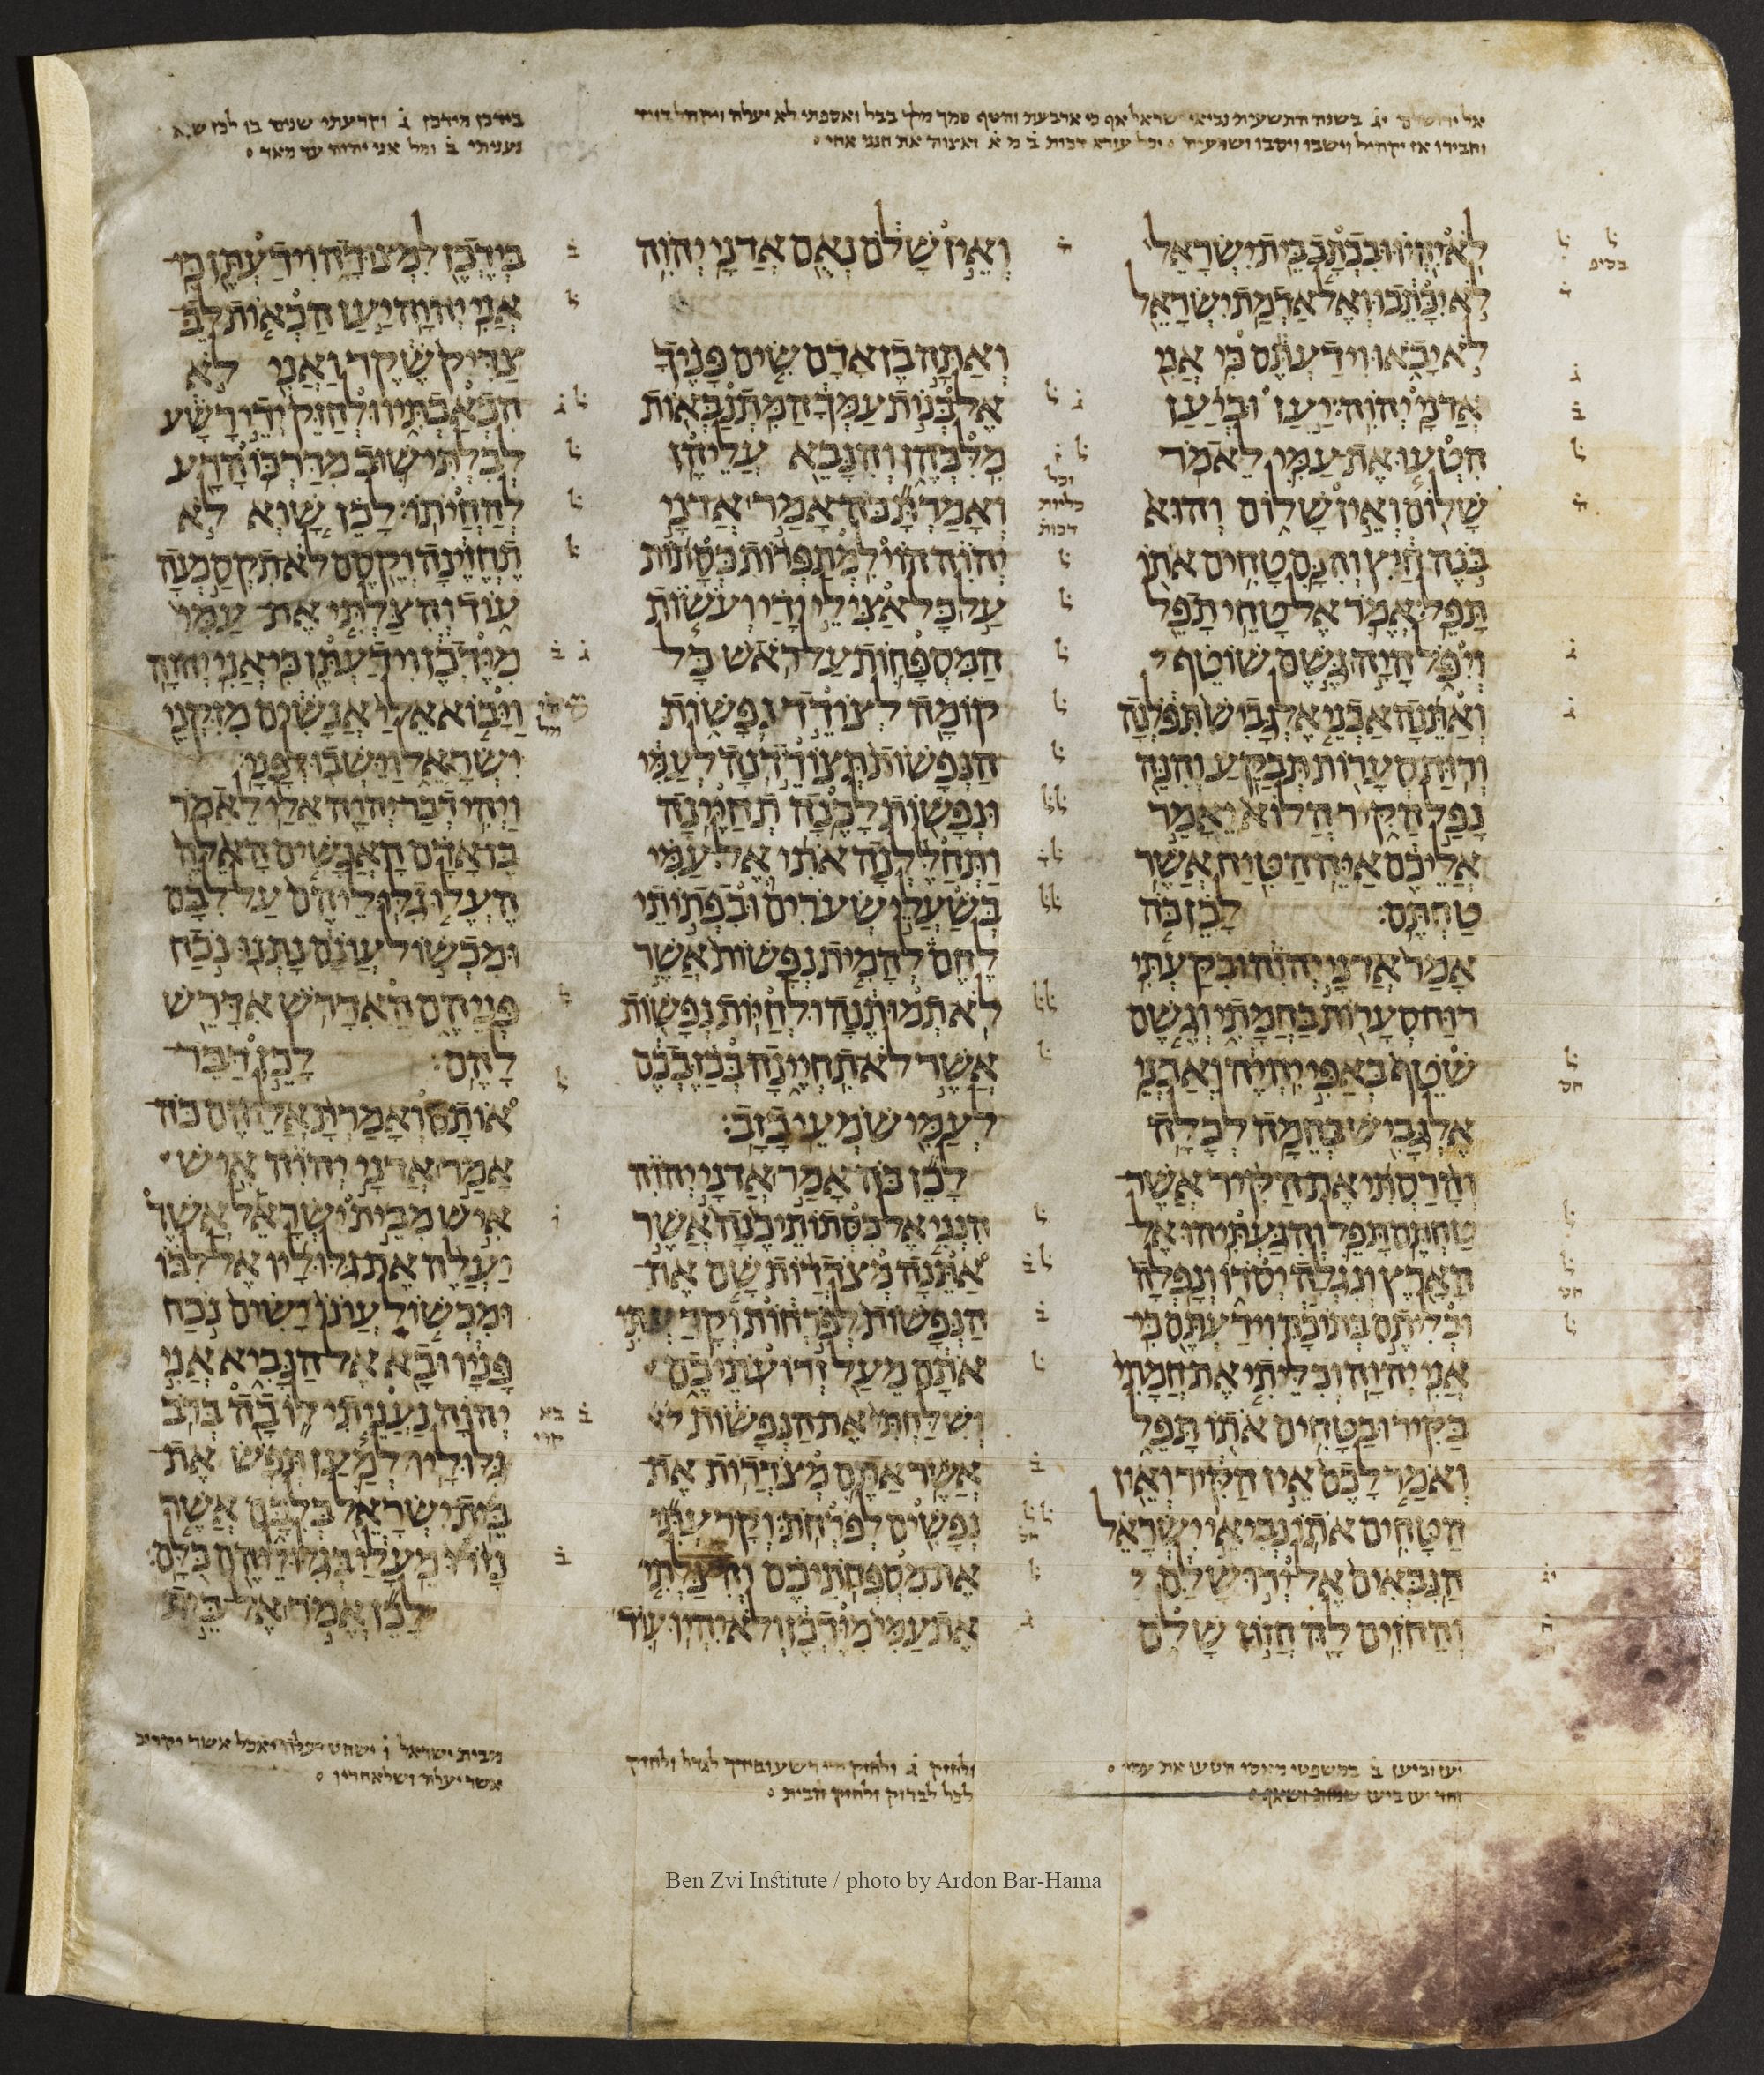 אל ירושלם יג בשנה התשעית נביאי ישראל אף כי ארבעת והטף סמך מלך בבל ואספתי לא יעלה ויקהל דויד
וחבירו אז יקהיל וישבו ויסבו ושמעיה וכל עזרא דכות ב מ א ואצוה את חנני אחי
בידכן מידכן ג וקרעתי שנים בו לכן שוא
נעניתי ב ומל אני יהוה עד מאד
לא יהיו ובכתב בית ישראל
לא יכתבו ואל אדמת ישראל
לא יבאו וידעתם כי אני
אדני יהוה׃ יען וביען
הטעו את עמי לאמר
שלום ואין שלום והוא
בנה חיץ והנם טחים אתו
תפל׃ אמר אל טחי תפל
ויפל היה גשם שוטף
ואתנה אבני אלגביש תפלנה
ורוח סערות תבקע׃ והנה
נפל הקיר הלוא יאמר
אליכם איה הטיח אשר
טחתם׃ לכן כה
אמר אדני יהוה ובקעתי
רוח סערות בחמתי וגשם
שטף באפי יהיה ואבני
אלגביש בחמה לכלה׃
והרסתי את הקיר אשר
טחתם תפל והגעתיהו אל
הארץ ונגלה יסדו ונפלה
וכליתם בתוכה וידעתם כי
אני יהוה׃ וכליתי את חמתי
בקיר ובטחים אתו תפל
ואמר לכם אין הקיר ואין
הטחים אתו׃ נביאי ישראל
הנבאים אל ירושלם
והחזים לה חזון שלם
ואין שלם נאם אדני יהוה׃
ואתה בן אדם שים פניך
אל בנות עמך המתנבאות
מלבהן והנבא עליהן׃
ואמרת כה אמר אדני
יהוה הוי למתפרות כסתות
על כל אצילי ידי ועשות
המספחות על ראש כל
קומה לצודד נפשות
הנפשות תצודדנה לעמי
ונפשות לכנה תחינה׃
ותחללנה אתי אל עמי
בשעלי שערים ובפתותי
לחם להמית נפשות אשר
לא תמותנה ולחיות נפשות
אשר לא תחיינה בכזבכם
לעמי שמעי כזב׃
לכן כה אמר אדני יהוה
הנני אל כסתותיכנה אשר
אתנה מצדדות שם את
הנפשות לפרחות וקרעתי
אתם מעל זרועתיכם
ושלחתי את הנפשות
אשר אתם מצדדות את
נפשים לפרחת׃ וקרעתי
את מספחתיכם והצלתי
את עמי מידכן ולא יהיו עוד
בידכן למצודה וידעתן כי
אני יהוה׃ יען הכאות לב
צדיק שקר ואני לא
הכאבתיו ולחזק ידי רשע
לבלתי שוב מדרכו הרע
להחיתו׃ לכן שוא לא
תחזינה וקסם לא תקסמנה
עוד והצלתי את עמי
מידכן וידעתן כי אני יהוה׃
ויבוא אלי אנשים מזקני
ישראל וישבו לפני׃
ויהי דבר יהוה אלי לאמר׃
בן אדם האנשים האלה
העלו גלוליהם על לבם
ומכשול עונם נתנו נכח
פניהם האדרש אדרש
להם׃ לכן דבר
אותם ואמרת אליהם כה
אמר אדני יהוה איש
איש מבית ישראל אשר
יעלה את גלוליו אל לבו
ומכשול עונו ישים נכח
פניו ובא אל הנביא אני
יהוה נעניתי לו בה ברב
גלוליו׃ למען תפש את
בית ישראל בלבם אשר
נזרו מעלי בגלוליהם כלם׃
לכן אמר אל בית
יען וביען ב במשפטי מאסו הטעו את עמי
ולחזק ג ולחזק ידי רשע עומדך לגדל ולחזק
לכל לבדוק ולחזק הבית
מבית ישראל ו ישחט יעלה יאכל אשר יקריב
אשר יעלה ושלאחריו
Ben Zvi Institute / photo by Ardon Bar-Hama